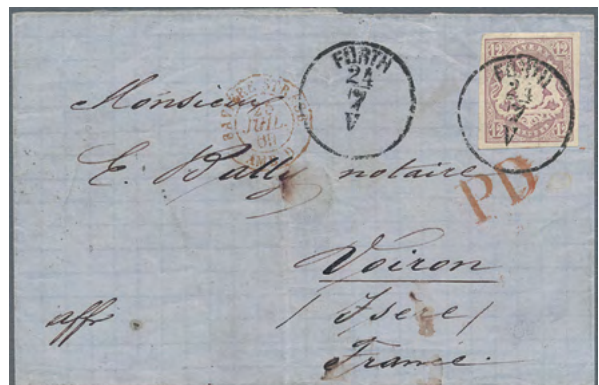 FÜRTH
24
7
V
FÜRTH
24
7
V
12 BAYERN 12
12 12
JUIL.
PD
Monsieur
E. Bally notaire
Voiron
/ Isère /
France.
affr